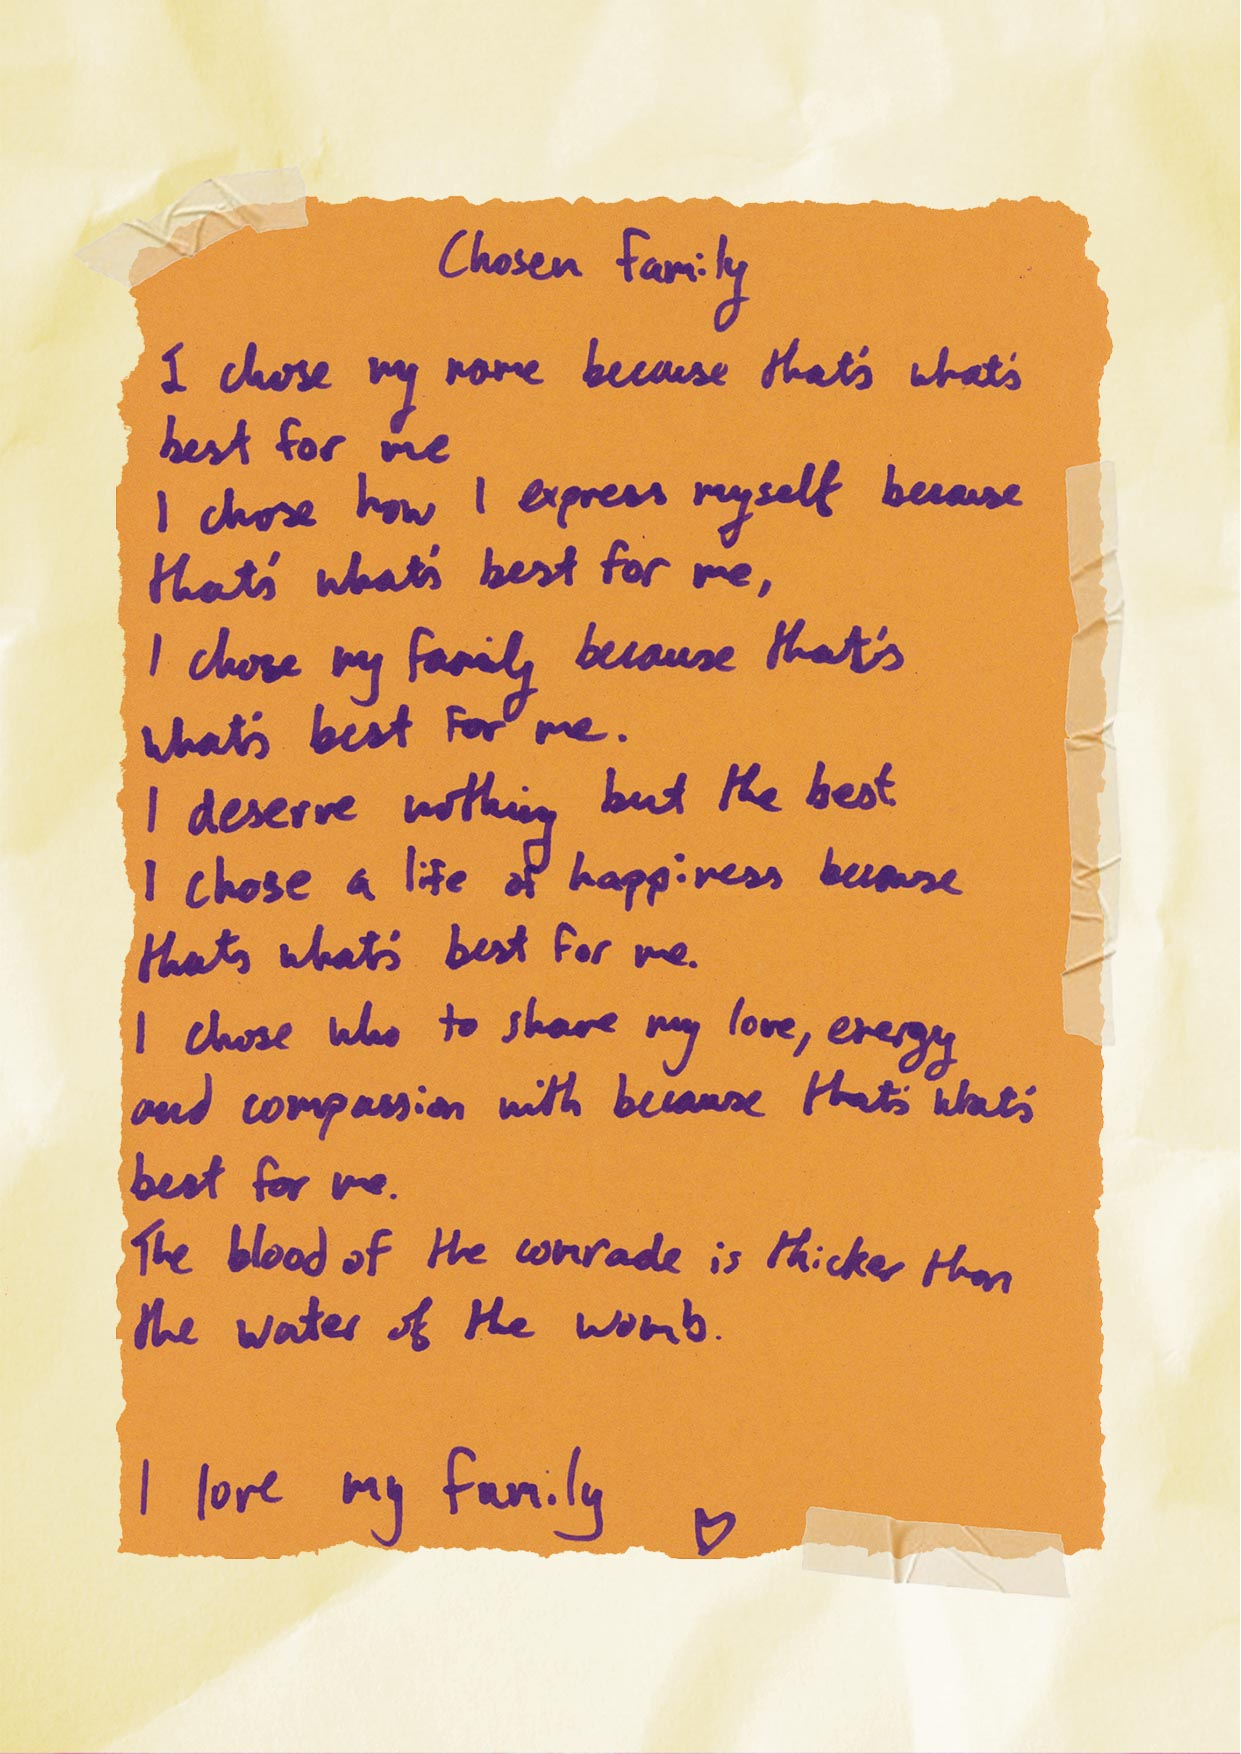 Chosen Family
I chose my name because that's what's
best for me
I chose how I express myself because
that's what's best for me,
I chose my family because that's
what's best for me.
I deserve nothing but the best
I chose a life of happiness because
thats what's best for me.
I chose who to share my love, energy
and compassion with because that's what's
best for me.
The blood of the comrade is thicker than
the water of the womb.
I love my family